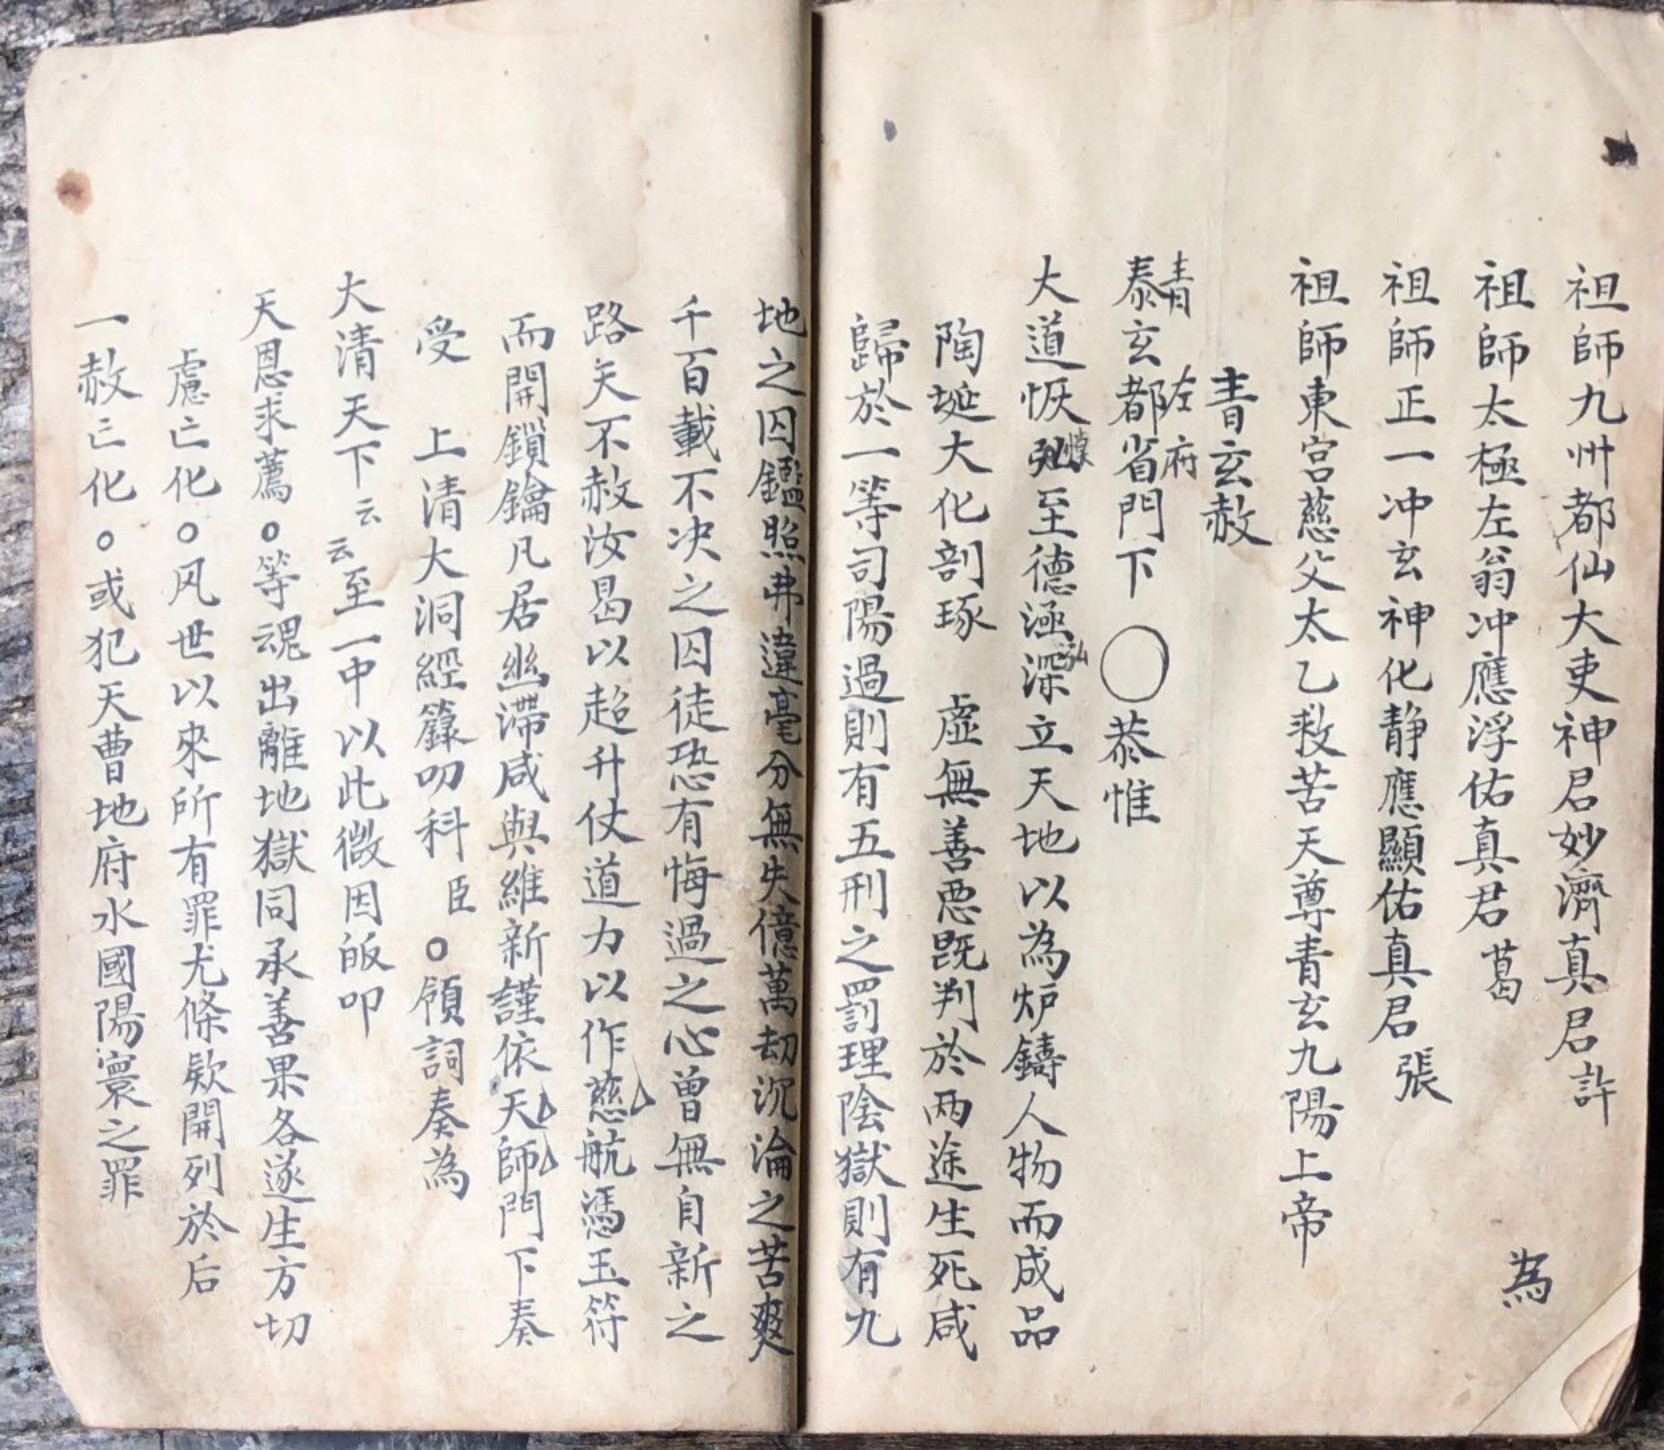 祖師九州都仙大吏神君妙濟真君許
祖師太極左翁冲應浮佑真君葛
為
祖師正一冲玄神化静應顯佑真君張
祖師東宮慈父太乙救苦天尊青玄九陽上帝
青玄赦
青 左府
泰玄都省門下〇恭惟
大道恢弘至德極深立天地以為炉鑄人物而成品
陶埏大化剖琢 虛無善惡既判於兩途生死咸
歸於一等司陽過則有五刑之罰理陰獄則有九
地之囚鑑照弗違毫分無失億萬劫沉淪之苦爽
千百載不决之囚徒恐有悔過之心曾無自新之
路天不赦汝曷以超升仗道力以作慈航馮玉符
而開鎖鑰凡居幽滯咸與維新謹依天師門下奏
受 上清大洞經籙叨科臣〇領詞奏為
大清天下云云至一中以此微因皈叩
天恩求薦〇等魂出離地獄同承善果各遂生方切
慮亡化〇风世以來所有罪尤條欵開列於后
一赦亡化〇或犯天曹地府水國陽寰之罪